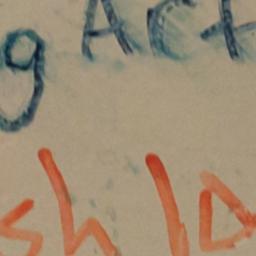 g Act
sh ID